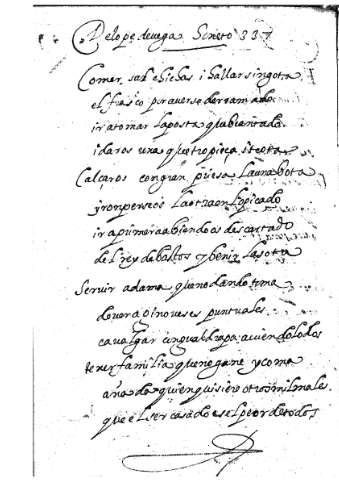 De lope de vega Soneto 337
Comer salchichas i hallar sin gota
el frasco por averse derramado
ir a tomar la posta quebrantado
i daros una que tropieça i trota
Calçaros con gran priesa la una bota
y romperseos la otra en lo picado
ir a primera abiendo os descartado
del rey de bastos y benir la sota
servir a dama que no dando toma
dever a ginoveses puntuales
cavalgar sin gualdrapa aviendo lodos
tener familia que regañe y coma
a de quien quisiere otros mil males
que el ser casado es el peor de todos